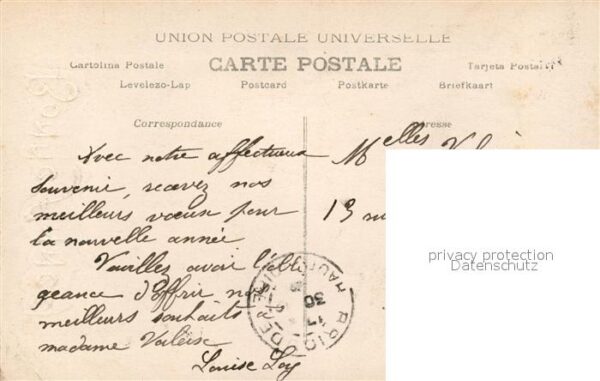 UNION POSTALE UNIVERSELLE
Cartolina Postale CARTE POSTALE Tarjeta Postal
Levelezo-Lap Postcard Postkarte Briefkaart
Correspondance
Adresse
Avec notre affectueux
souvenir, recevez nos
meilleurs vœux pour
la nouvelle année.
Veuillez avoir l'obli
geance d'offrir nos
meilleurs souhaits à
madame Valeise
Louise Loy
Melles
13
BRIOUDE
30
privacy protection
Datenschutz